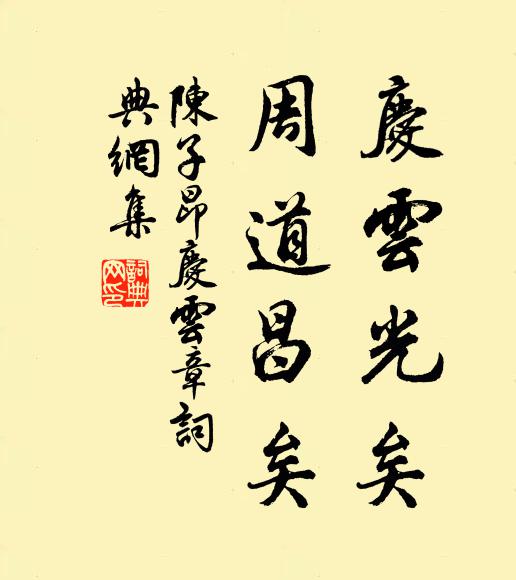 慶雲光矣
周道昌矣
陳子昂慶雲章詞
典網集
詞典
网印